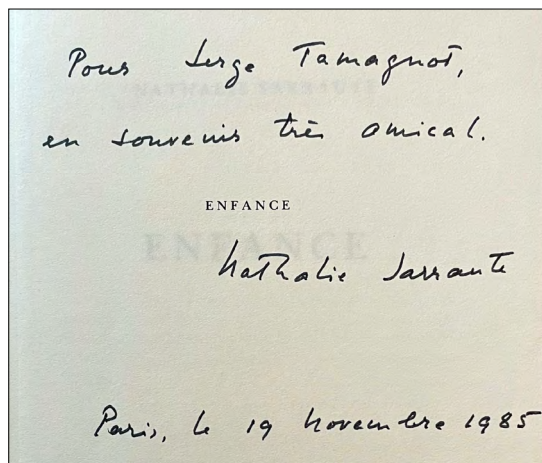 Pour Serge Tamagnot,
en souvenir très amical.
ENFANCE
ENFANCE
Nathalie Sarraute
Paris, le 19 novembre 1985